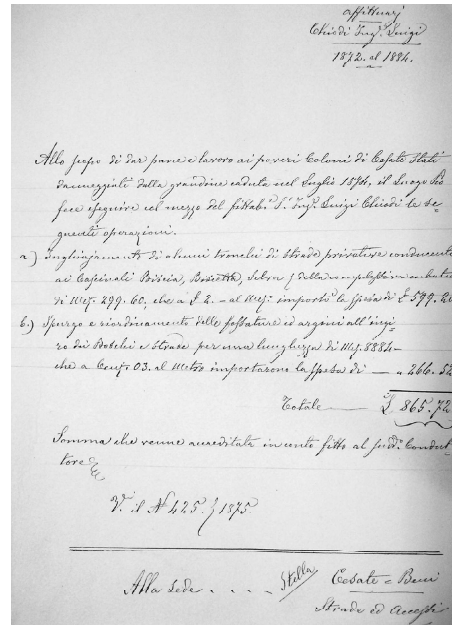 affittuarj
Chiodi Ing.r Luigi
1872. al 1884.
Allo scopo di dar pane e lavoro ai poveri Coloni di Cesate stati
danneggiati dalla grandine caduta nel Luglio 1874, il Luogo Pio
fece eseguire col mezzo del fittab.e S.r Ing.r Luigi Chiodi le se-
guenti operazioni.
a) Inghiajamento di alcuni tronchi di strade privative conducenti
ai Cascinali Biscia, Boscetta, Selva della complessiva
di Met. 299.60, che a £ 2. - al Met. importò la spesa di £ 599.20
b.) Spurgo e riordinamento delle fossature ed argini all'ingi-
ro dei Boschi e Strade per una lunghezza di Met. 8884 -
che a Cent. 03. al Metro importarono la spesa di — " 266.52
Totale — £ 865.72
Somma che venne accreditata in conto fitto al sud.o Condut-
tore
V. il N.o 425. } 1875.
Alla Sede - - - - Stella
Cesate = Beni
Strade ed Accessi